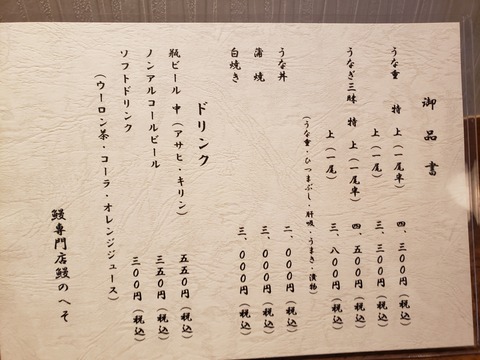 御品書
うな重 特上(一尾半) 四、三〇〇円(税込)
上(一尾) 三、三〇〇円(税込)
うなぎ三昧 特上(一尾半) 四、五〇〇円(税込)
上(一尾) 三、八〇〇円(税込)
(うな重・ひつまぶし・肝吸・うまき・漬物)
うな丼 二、〇〇〇円(税込)
蒲焼 三、〇〇〇円(税込)
白焼き 三、〇〇〇円(税込)
ドリンク
瓶ビール 中(アサヒ・キリン) 五五〇円(税込)
ノンアルコールビール 三五〇円(税込)
ソフトドリンク 三〇〇円(税込)
(ウーロン茶・コーラ・オレンジジュース)
鰻専門店鰻のへそ